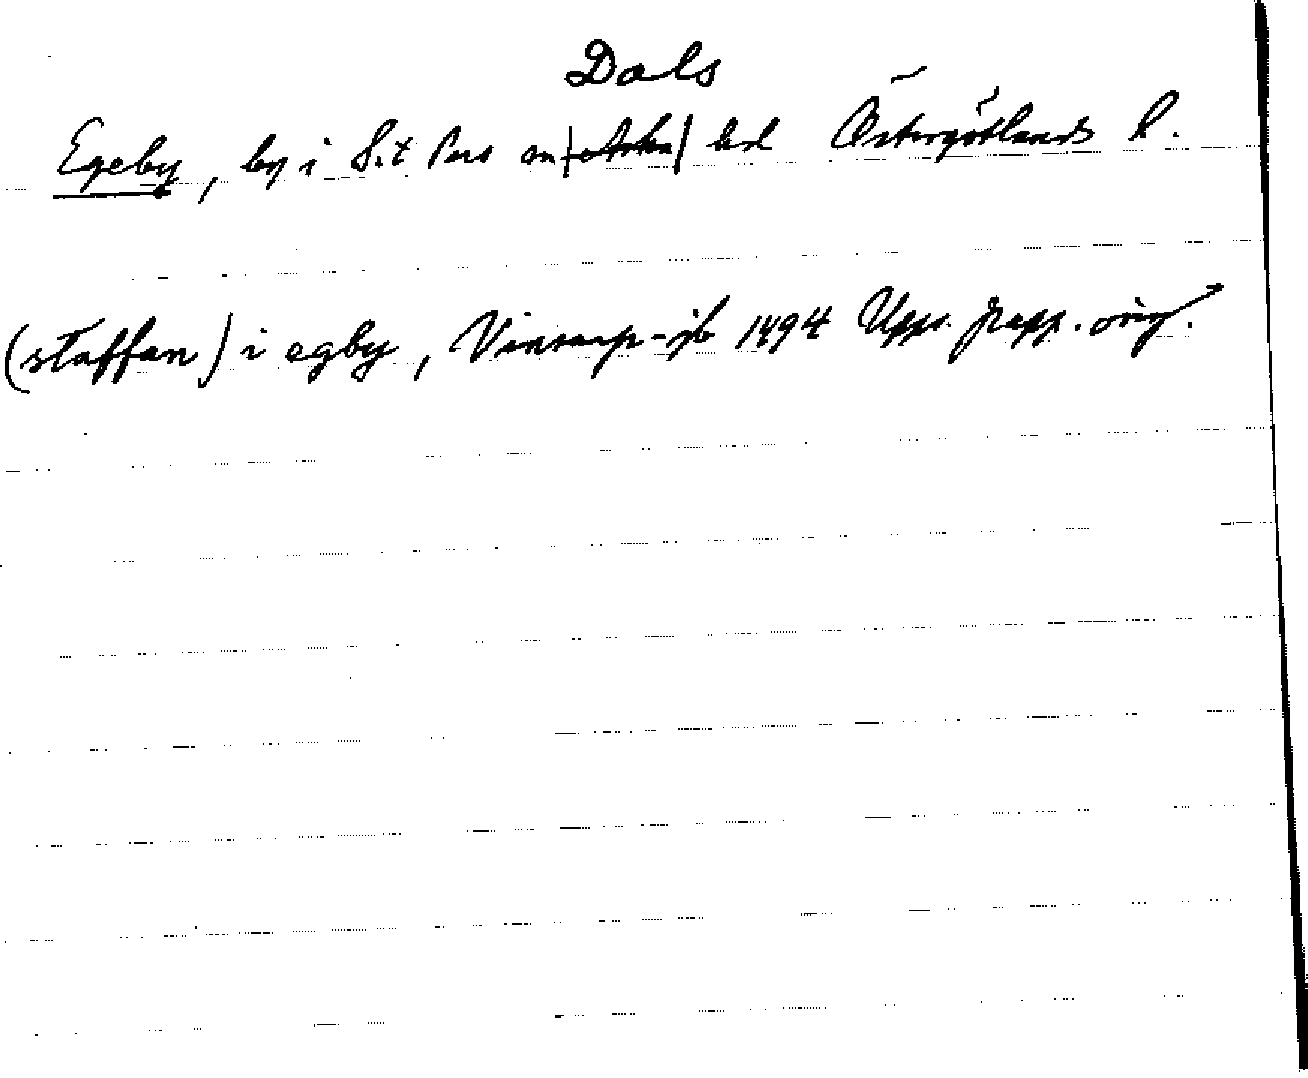 Dals
Egeby, by i S:t Pers sn hd Östergötlands l.
(staffan) i egby, Vinsarp-jb 1494 Upps. papp. orig.